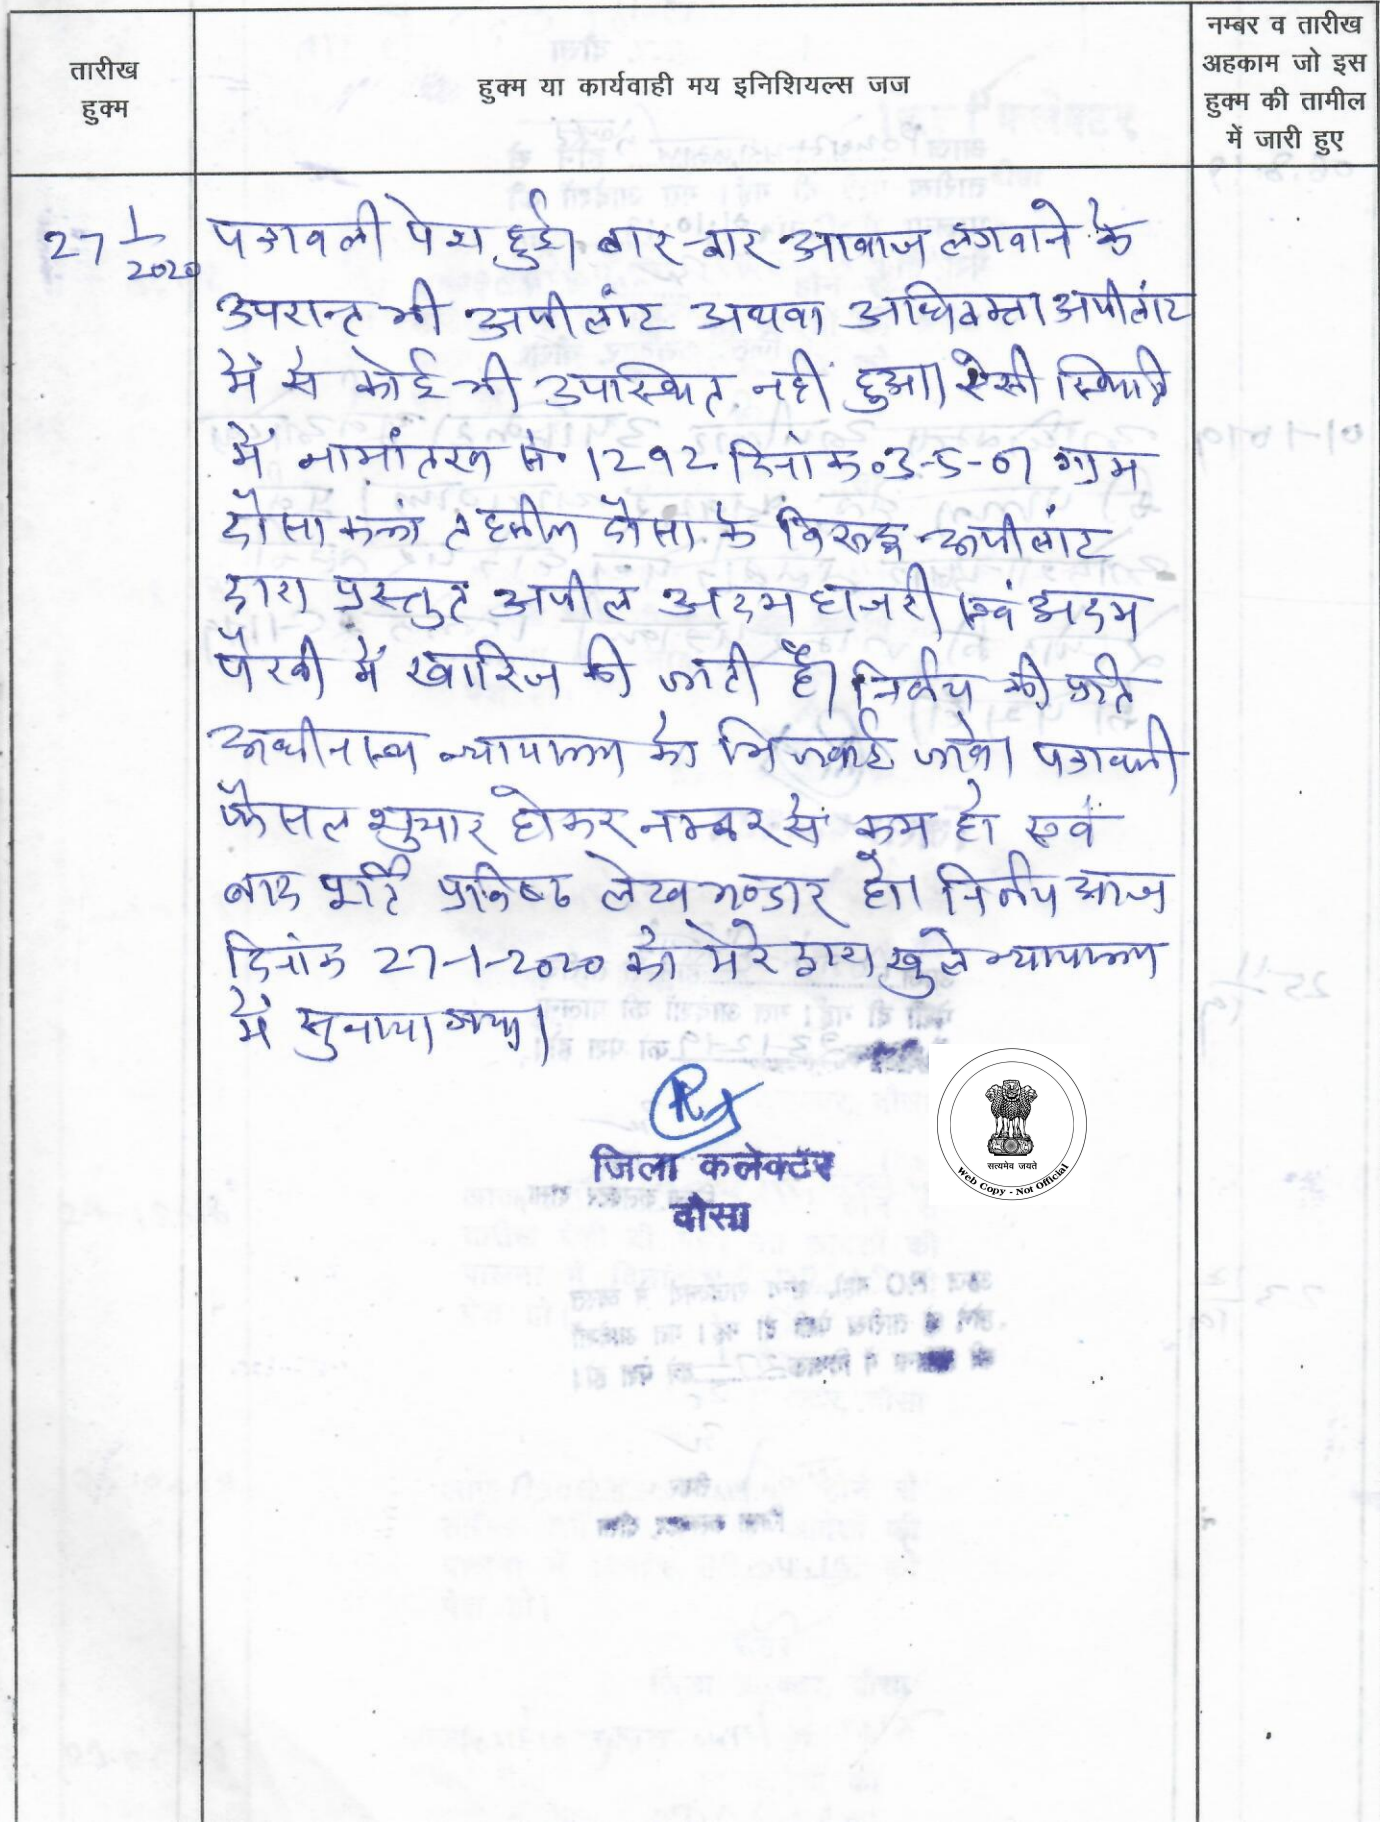 तारीख
हुक्म
हुक्म या कार्यवाही मय इनिशियल्स जज
नम्बर व तारीख
अहकाम जो इस
हुक्म की तामील
में जारी हुए
27 1/2020
पत्रावली पेश हुई। बार-बार आवाज लगवाने के
उपरान्त भी अपीलांट अथवा अधिवक्ता अपीलांट
में से कोई भी उपस्थित नहीं हुआ। ऐसी स्थिति
में नामांतरण सं. 1292 दिनांक 03-5-07 ग्राम
दौसा कलां तहसील दौसा के विरूद्ध अपीलांट
द्वारा प्रस्तुत अपील अदम हाजरी एवं अदम
पैरवी में खारिज की जाती है। निर्णय की प्रति
अधीनस्थ न्यायालय को भिजवाई जावे। पत्रावली
फैसल शुमार होकर नम्बर से कम हो एवं
बाद पूर्ति प्रविष्ट लेख भण्डार हो। निर्णय आज
दिनांक 27-1-2020 को मेरे द्वारा खुले न्यायालय
में सुनाया गया।
जिला कलेक्टर
दौसा
सत्यमेव जयते
Web Copy - Not Official